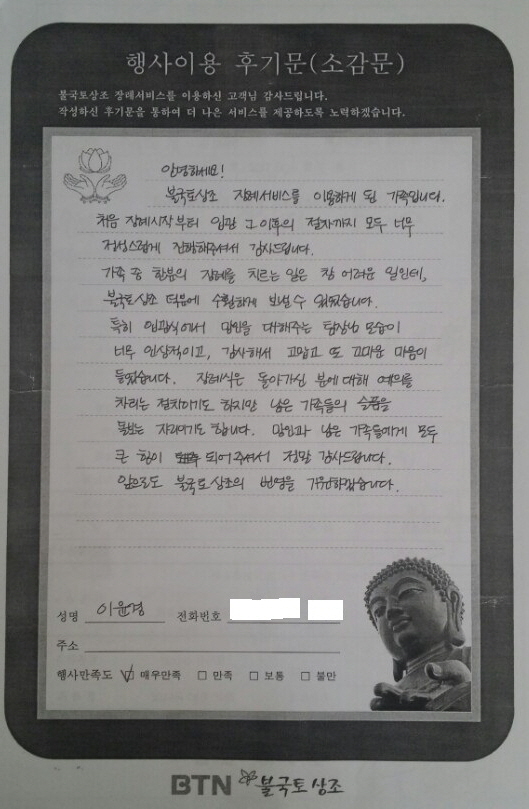 행사이용 후기문(소감문)
불국토상조 장례서비스를 이용하신 고객님 감사드립니다.
작성하신 후기문을 통하여 더 나은 서비스를 제공하도록 노력하겠습니다.
안녕하세요!
불국토상조 장례서비스를 이용하게 된 가족입니다.
처음 장례시작부터 입관 그 이후의 절차까지 모두 너무
정성스럽게 진행해주셔서 감사드립니다.
가족 중 한분의 장례를 치르는 일은 참 어려운 일인데,
불국토상조 덕분에 수월하게 보낼 수 있었습니다.
특히 입관식에서 망인을 대해주는 팀장님 모습이
너무 인상적이고, 감사해서 고맙고 또 고마운 마음이
들었습니다. 장례식은 돌아가신 분에 대해 예의를
차리는 절차이기도 하지만 남은 가족들의 슬픔을
돌보는 자리이기도 합니다. 망인과 남은 가족들에게 모두
큰 힘이 되어주셔서 정말 감사드립니다.
앞으로도 불국토상조의 번영을 기원하겠습니다.
성명 이윤경 전화번호
주소
행사만족도 ☑ 매우만족 □ 만족 □ 보통 □ 불만
BTN 불국토상조